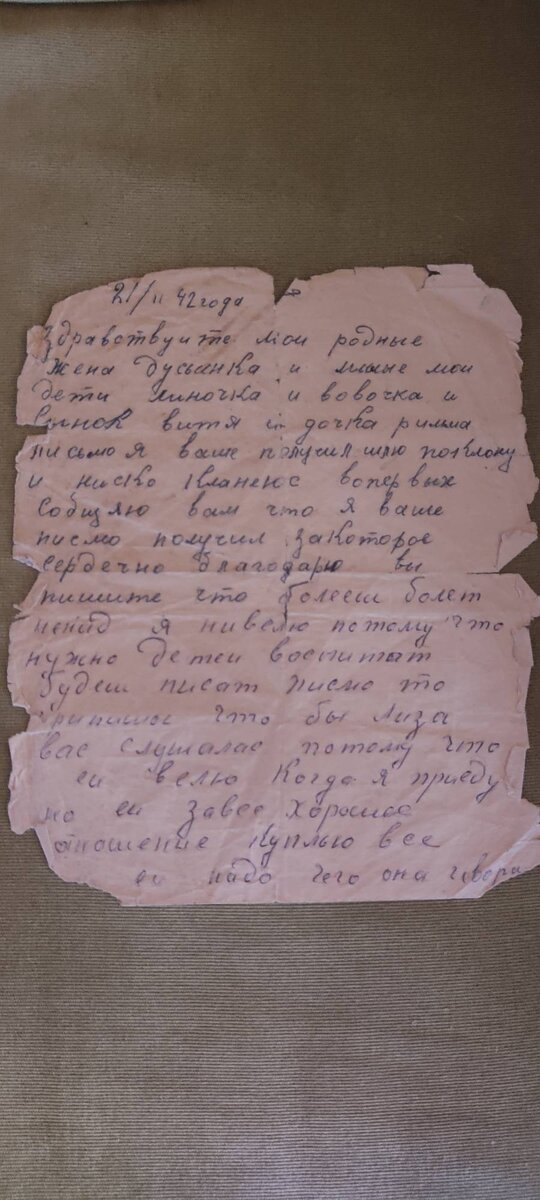 21/II 42 года
Здравствуите мои родные
Жена Дусьанка и милые мои
дети линочка и вовочка и
сынок витя и дочка римма
письмо я ваше получил шлю поклону
и ниско кланеюс вопервых
собщяю вам что я ваше
писмо получил закоторое
сердечно благодарю вы
пишите что болееш болет
я нивелю потому что
нужно детеи воспитат
будеш писат писмо то
припишы что бы лиза
вас слушалас потому что
еи велю Когда я приеду
но еи завее хорошее
отношение куплью все
еи надо чего она говори